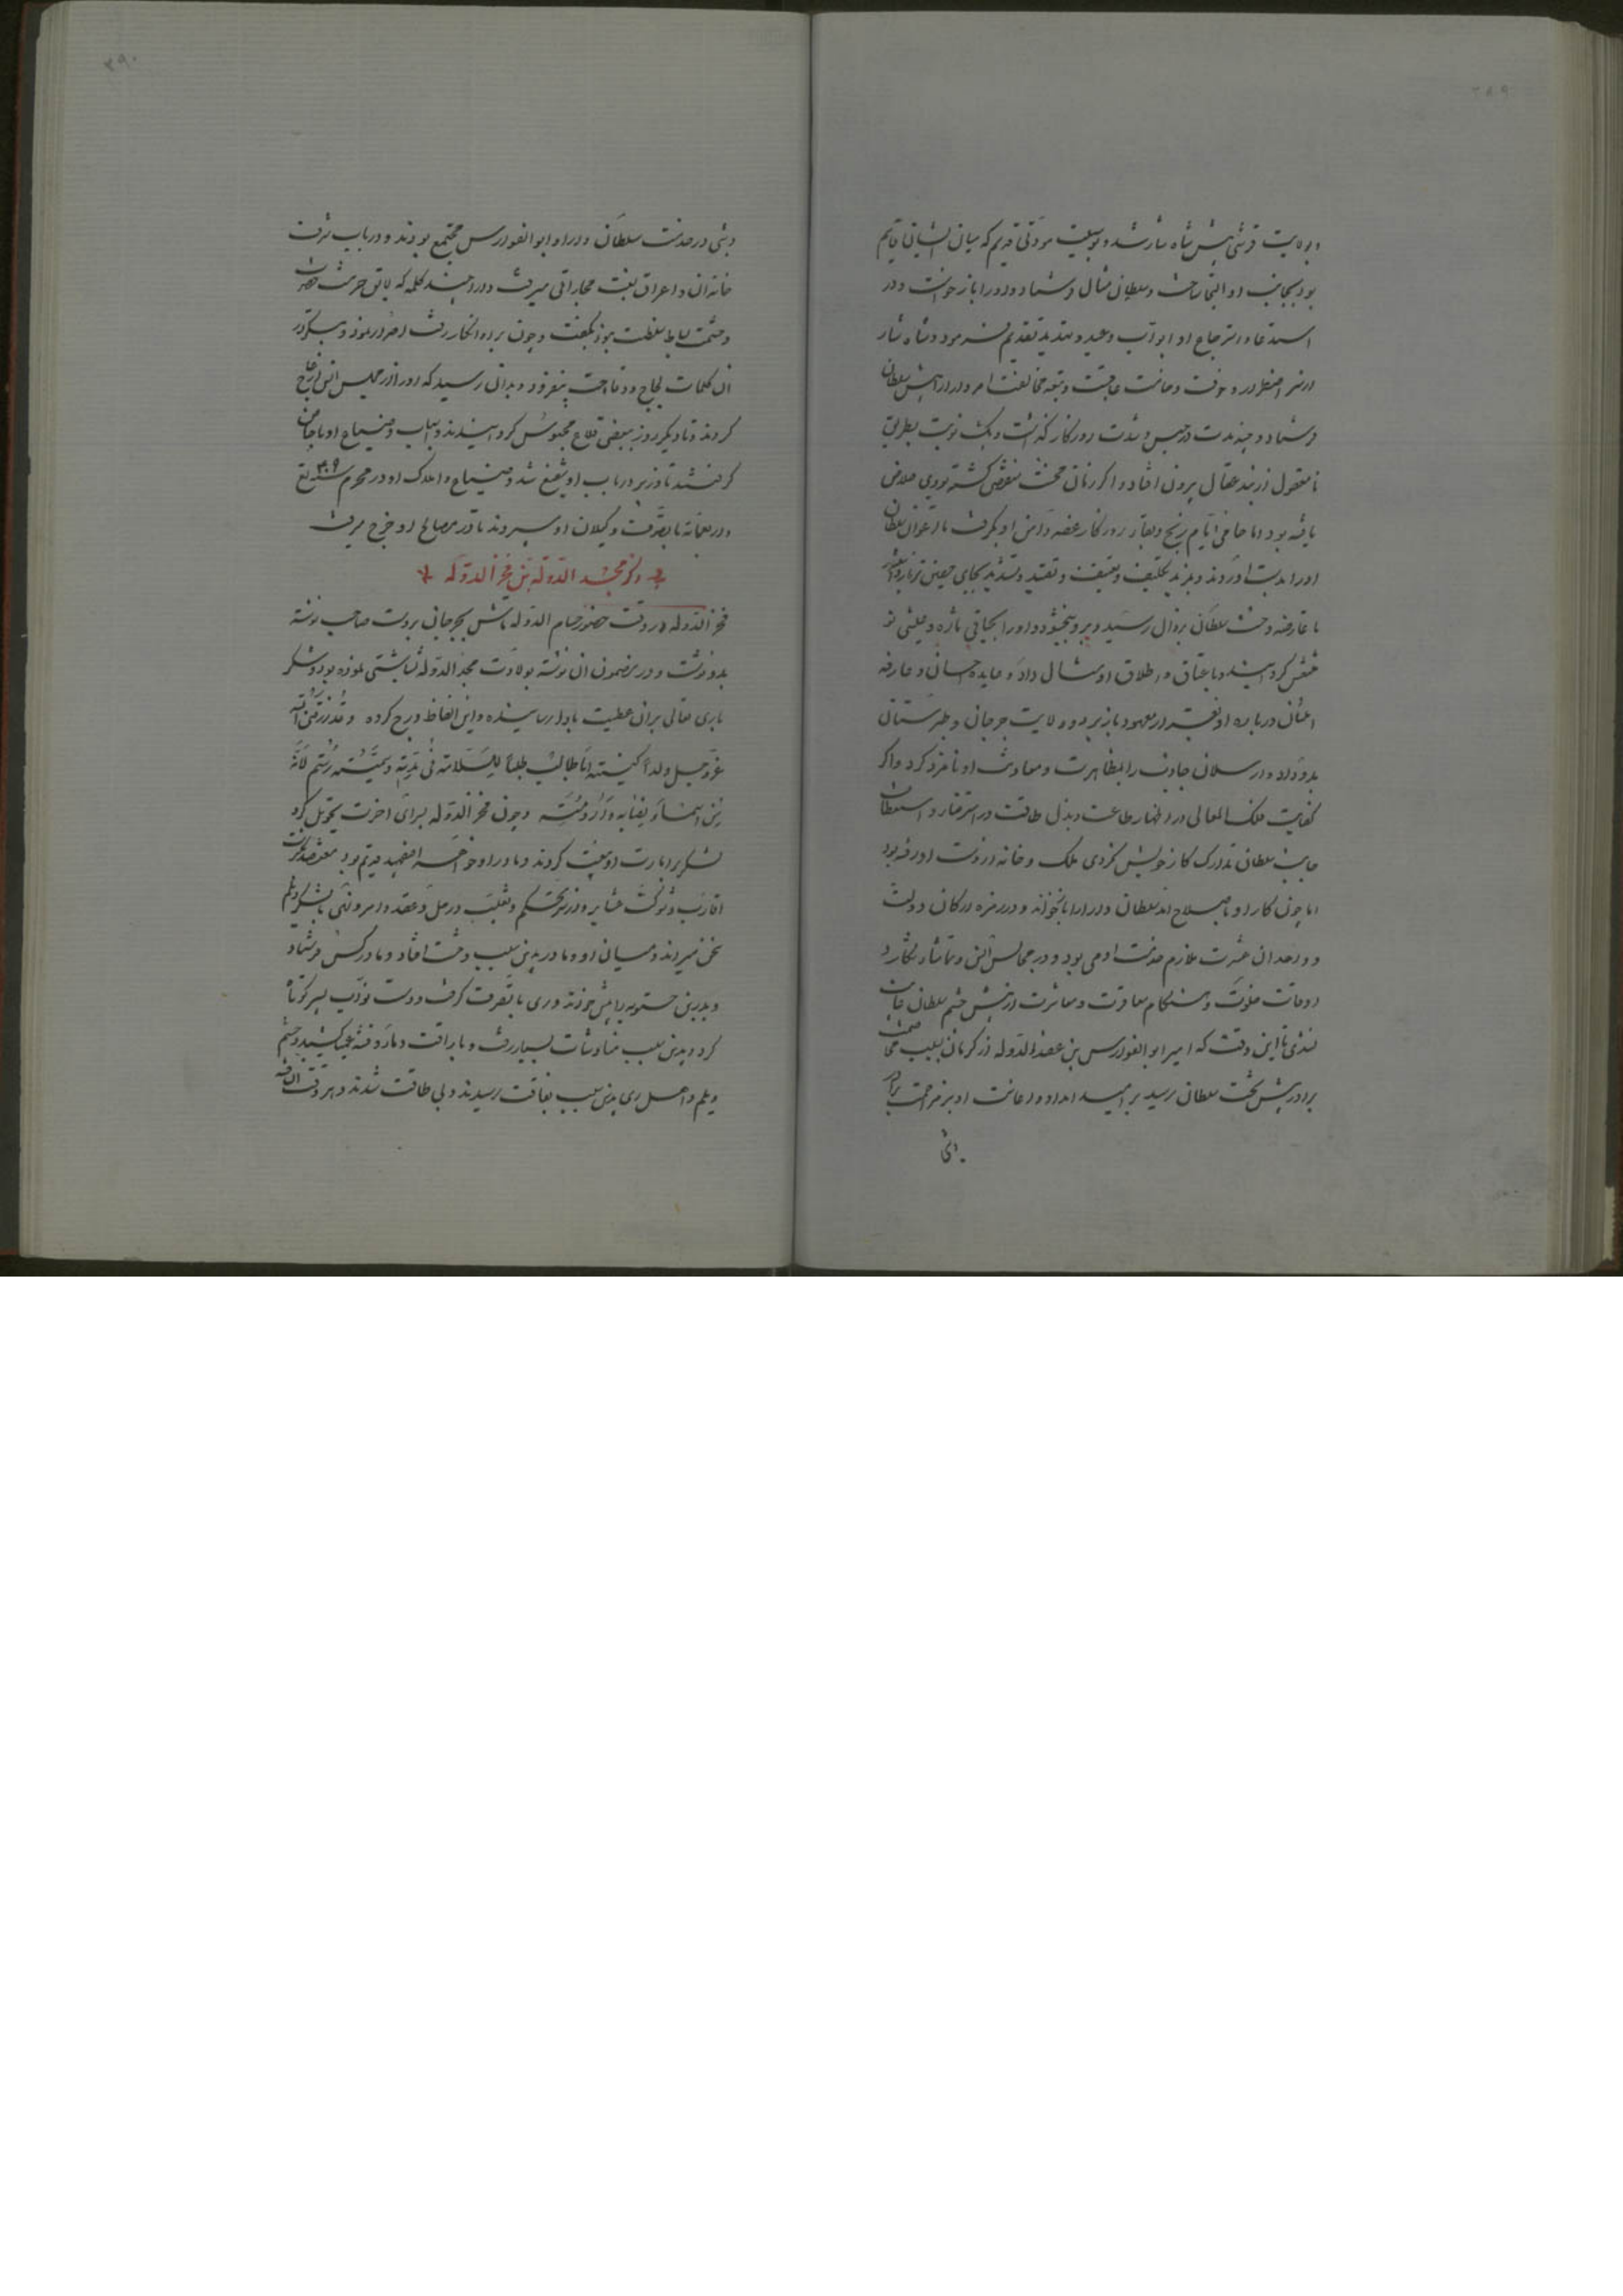 ۲۸۹
و بولایت قرشی پیش شاه شار شد و بوسیلت مودتی قدیم که میان ایشان قایم
بود بجانب او التجا ساخت و سلطان مثال فرستاد و دارا را باز خواست و در
استدعا و استرجاع او ابواب وعید و تهدید تقدیم فرمود و شاه شار
از سر اضطرار و خوف و خامت عاقبت و تبعه مخالفت امر دارا را پیش سلطان
فرستاد و چند مدت در حبس و شدت روزکار کذاشت و یک نوبت بطریق
نامعقول از بند عقال بیرون افتاد و اکر زمان محنت منقضی کشته بودی خلاص
یافته بود اما خامی ایام رنج و بقای روزکار غصه دامن او بکرفت تا اعوان سلطان
او را بدست اوردند و بمزید تکلیف و تعنیف و تقیید و تشدید بجای حصین تر باز داشتند
تا عارضه وحشت سلطان بزوال رسید و برو ببخشود و او را بحیاتی تازه و عیشی نو
منتعش کردانید و باعتاق و اطلاق او مثال داد و عایده احسان و عارفه
امتنان درباره او بقرار معهود باز برد و ولایت جرجان و طبرستان
بدو داد و ارسلان جاذب را بمظاهرت و معاونت او نامزد کرد و اکر
کفایت ملک المعالی در اظهار طاعت و بذل طاقت در استرضا و استعطاف
جانب سلطان تدارک کار خویش نکردی ملک و خانه از دست او رفته بود
اما چون کار او باصلاح امد سلطان دارا را باز خواند و در زمره ارکان دولت
و وجدان عشرت ملازم خدمت او می بود و در مجالس انس و تماشا و شکار و
اوقات خلوت و هنکام معاقرت و معاشرت از پیش چشم سلطان غایب
نشدی تا این وقت که امیر ابو الفوارس بن عضد الدوله از کرمان بسبب مخاصمت
برادر پیش تخت سلطان رسید بر امید امداد و اعانت او بر مزاحمت برادر
و شی
۲۹۰
و شی در خدمت سلطان دارا و ابو الفوارس مجتمع بودند و در باب شرف
خاندان و اعراق نسبت مجاراتی میرفت و دارا چند کلمه که لایق حرمت حضرت
و حشمت بساط سلطنت نبود بکفت و چون برو انکار رفت اصرار نمود و بتکرار
ان کلمات لجاج و وقاحت بیفزود و بدان رسید که او را از مجلس انس ازعاج
کردند و تا دیکر روز ببعضی قلاع محبوس کردانیدند و اسباب و ضیاع او با خاص
کرفتند تا وزیر در باب او شفیع شد و ضیاع و املاک او در محرم سنه ۴۰۹ تسع
و اربعمائة با تصرف وکیلان او سپردند تا در مصالح او خرج میرفت
ذکر مجد الدوله بن فخر الدوله
فخر الدوله در وقت حضور حسام الدوله تاش بجرجان بدوست صاحب نوشته
بدو نوشت و در مضمون ان نوشته بولادت مجد الدوله بشاشتی نموده بود و شکر
باری تعالی بران عطیت بادا رسانیده و این الفاظ درج کرده و قد رزقنی الله
عز و جل ولدا کنیته ابا طالب طلبا للسلامة فی مدته و سمیته رستم لانه
من اسماء ابائه و ارومته و چون فخر الدوله بسرای اخرت تحویل کرد
لشکر با مارت او بیعت کردند و مادر او خواهر اصفهبد پریم بود بعضد کثرت
اقارب و شوکت عشایر و از سر تحکم و تغلب در حل و عقد و امر و نهی با لشکر دیلم
سخن میراند و میان او و مادر بدین سبب وحشت افتاد و مادر کس فرستاد
و بدر بن حسنویه را پیش خواند و ری با تصرف کرفت و دست نواب پسر کوتاه
کرد و بدین سبب مناوشات بسیار رفت و باراقت دما و فتنه عمیا کشید و حشم
دیلم و اهل ری بدین سبب بفاقت رسیدند و بی طاقت شدند و بهر وقت ان فتنه